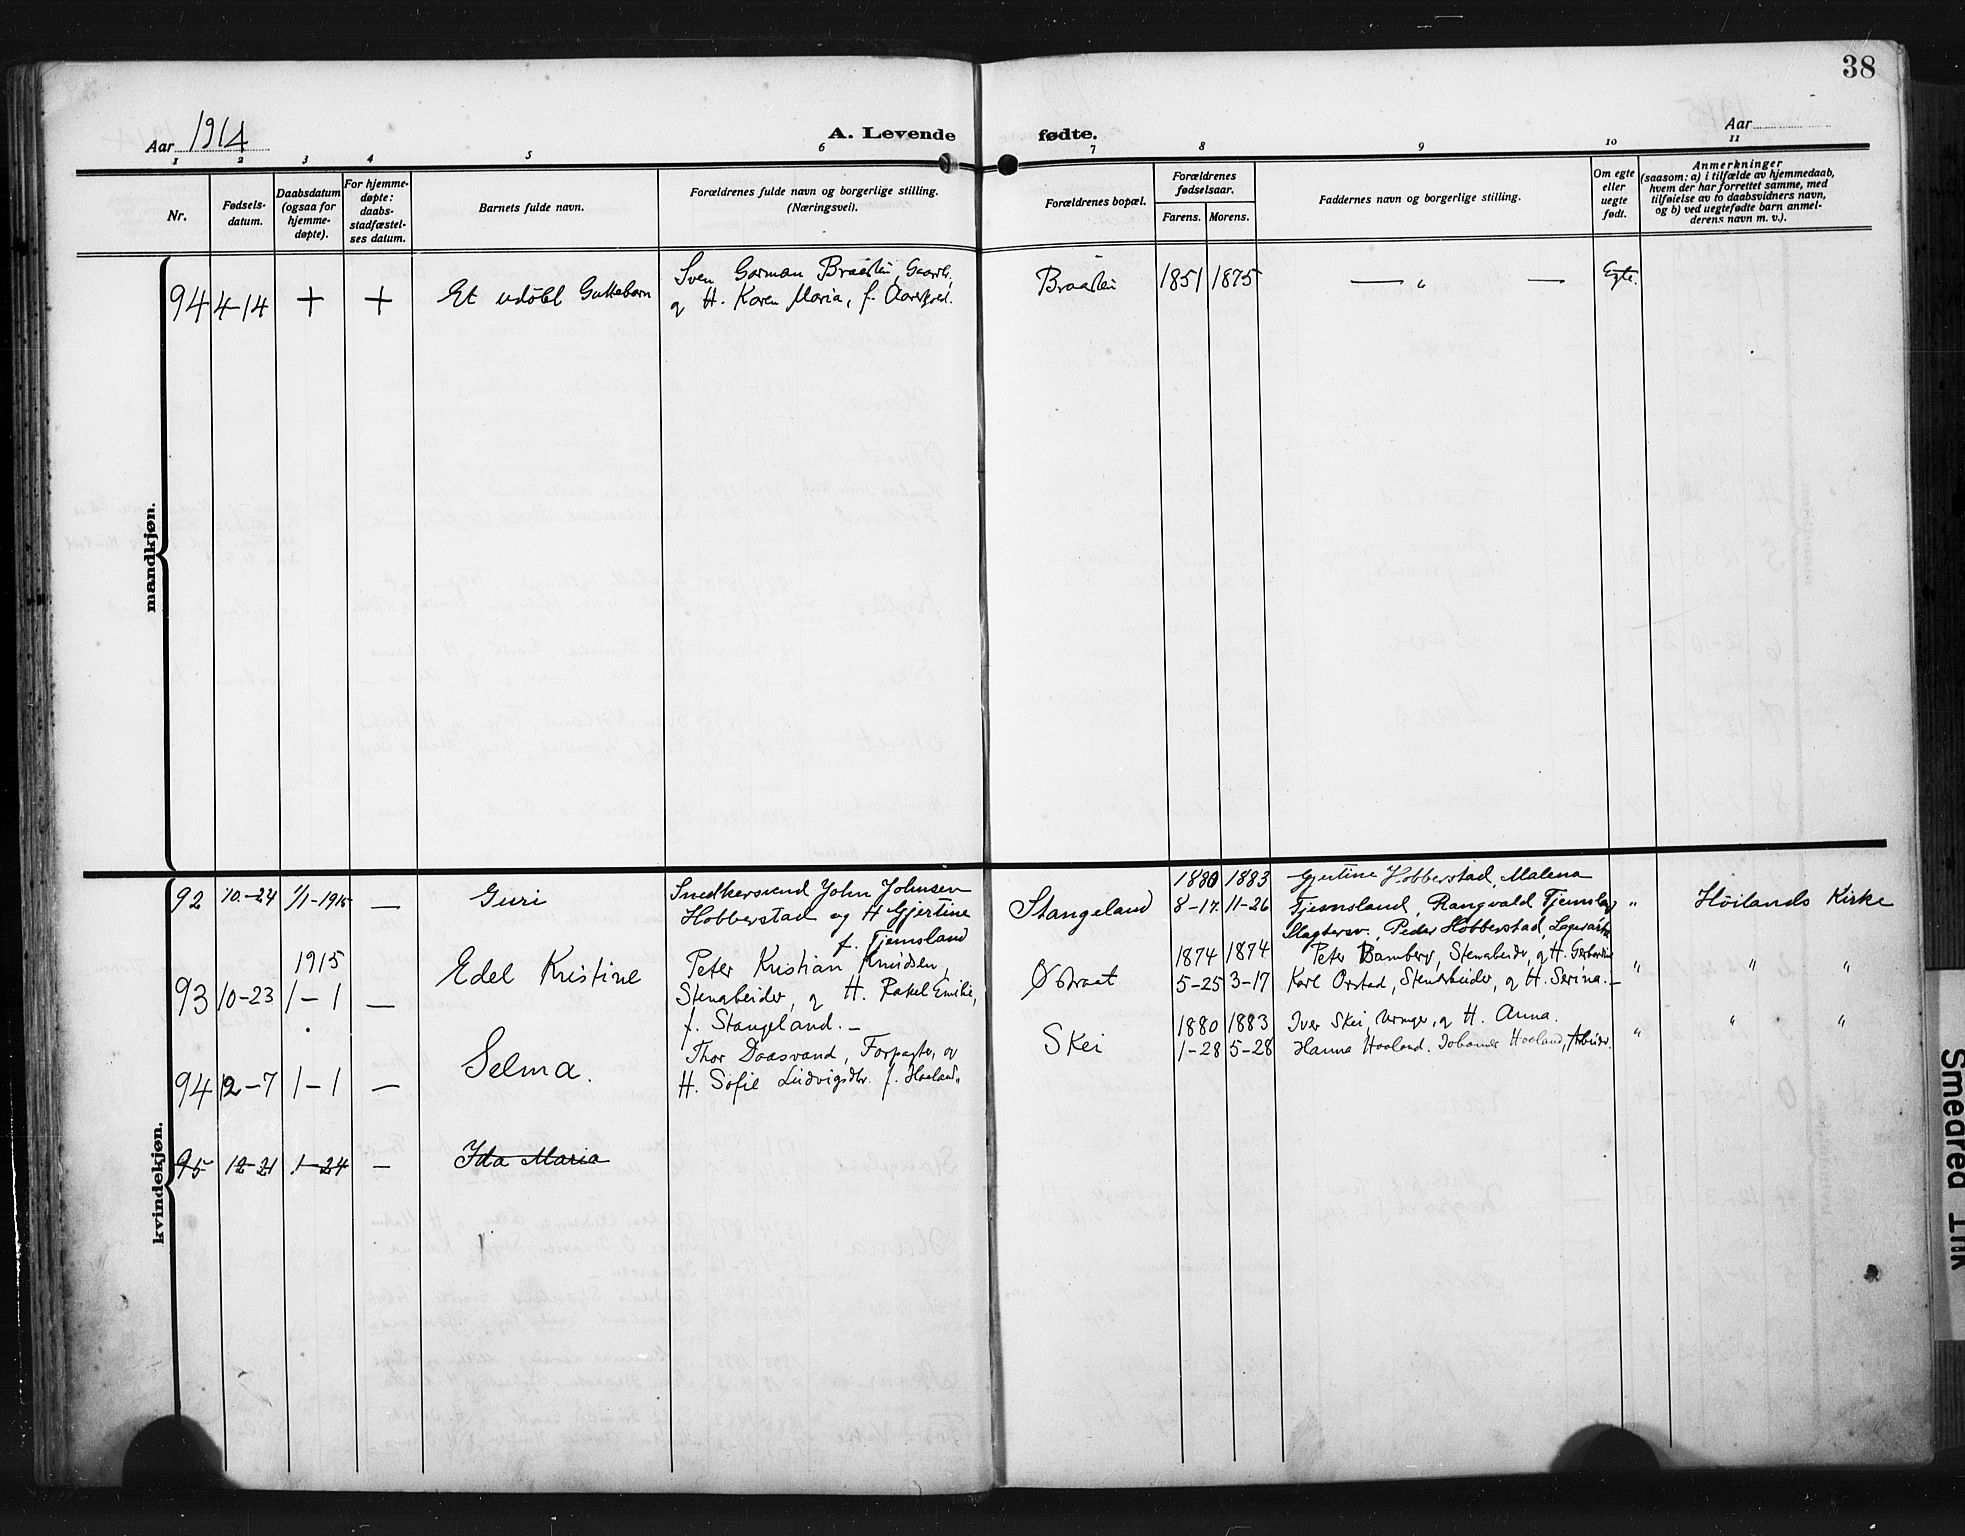 38
Aar 1914
A. Levende fødte.
Aar
1 2 3 4 5 6 7 8 9 10 11
Nr.
Fødsels-
datum.
Daabsdatum
(ogsaa for
hjemme-
døpte).
For hjemme-
døpte:
daabs-
stadfæstel-
ses datum.
Barnets fulde navn.
Forældrenes fulde navn og borgerlige stilling.
(Næringsvei).
Forældrenes bopæl.
Forældrenes
fødselsaar.
Farens. Morens.
Faddernes navn og borgerlige stilling.
Om egte
eller
uegte
født.
Anmerkninger
(saasom: a) i tilfælde av hjemmedaab,
hvem der har forrettet samme, med
tilføielse av to daabsvidners navn,
og b) ved uegtefødte barn anmel-
derens navn m. v.).
mandkjøn.
94 4-14 + + Et udöbt Guttebarn
Sven Gorman Braastei, Gaardb.
g H. Karen Maria, f.
Braastei 1851 1875 — " — Egte.
kvindekjøn.
92 10-24 1/1-1915 — Guri
Snedkersvend John Johnsen
Hobberstad og H Gjertine
f. Tjemsland
Stangeland
1880 1883
8-17 11-26
Gjertine Hobberstad, Malena
Tjemsland, Rangvald Tjemsland
Peder Hobberstad,
" Höilands Kirke
93 10-23 1915
1-1 — Edel Kristine
Peter Kristian Knudsen,
Stenabeider, g H. Rakel Emilie,
f. Stangeland. —
Østraat
1874 1874
5-25 3-17
Peter Bamberg, Stenabeider, g H.
Karl Orstad, Stenarbeider, g H. Serina. —
" " "
94 12-7 1-1 — Selma.
Thor Daasvand, Forpagter, og
H. Sofie Ludvigsdtr. f. Haaland.
Skei
1880 1883
1-28 5-28
Iver Skei, g H. Anna.
Hanna Haaland. Johannes Haaland, Arbeider.
" " "
95 12-21 1-24 — Ida Maria
Smeared Ink